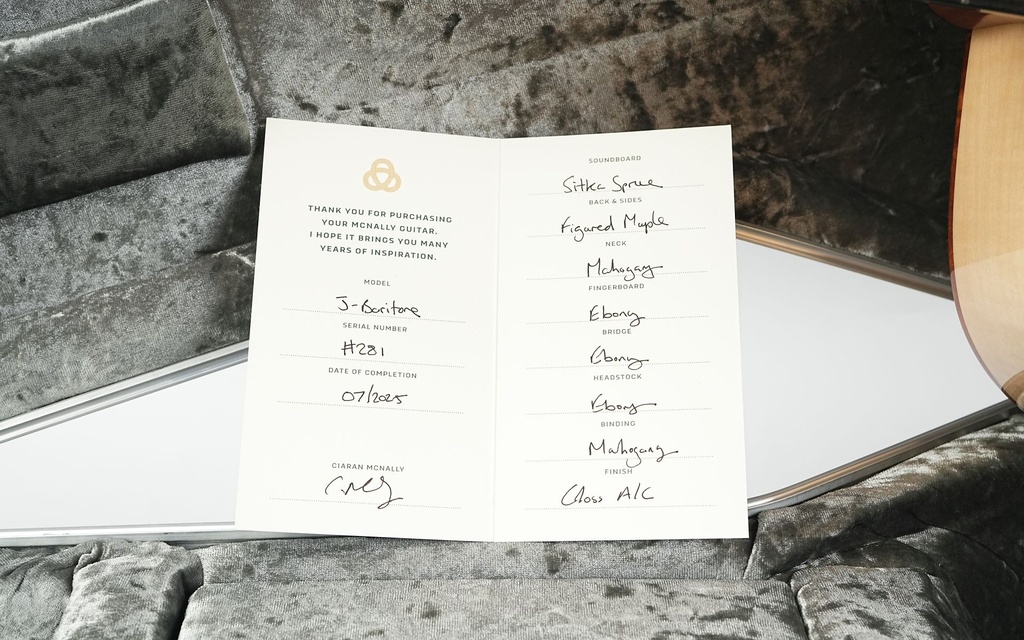 THANK YOU FOR PURCHASING
YOUR MCNALLY GUITAR.
I HOPE IT BRINGS YOU MANY
YEARS OF INSPIRATION.
MODEL
J-Baritone
SERIAL NUMBER
#281
DATE OF COMPLETION
07/2025
CIARAN MCNALLY
SOUNDBOARD
Sitka Spruce
BACK & SIDES
Figured Maple
NECK
Mahogany
FINGERBOARD
Ebony
BRIDGE
Ebony
HEADSTOCK
Ebony
BINDING
Mahogany
FINISH
Gloss A/C